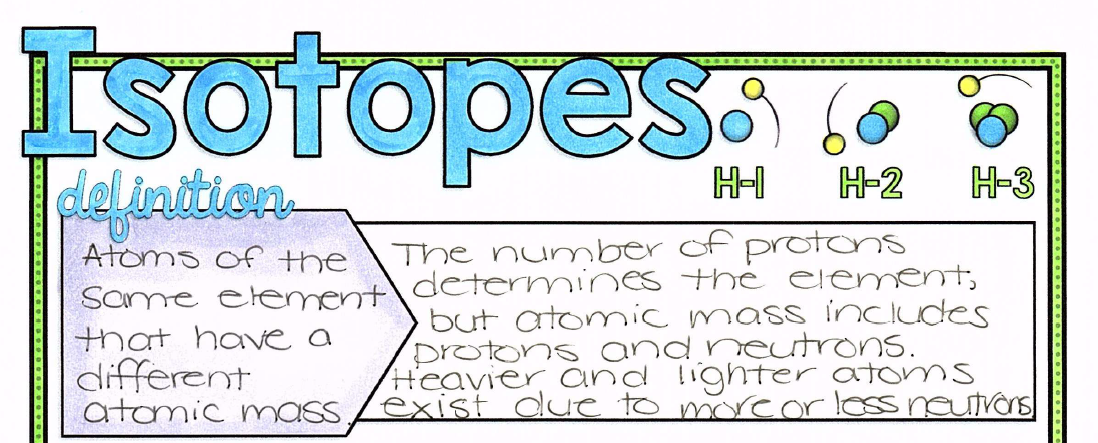 Isotopes
H-1 H-2 H-3
definition
Atoms of the
same element
that have a
different
atomic mass.
The number of protons
determines the element,
but atomic mass includes
protons and neutrons.
Heavier and lighter atoms
exist due to more or less neutrons